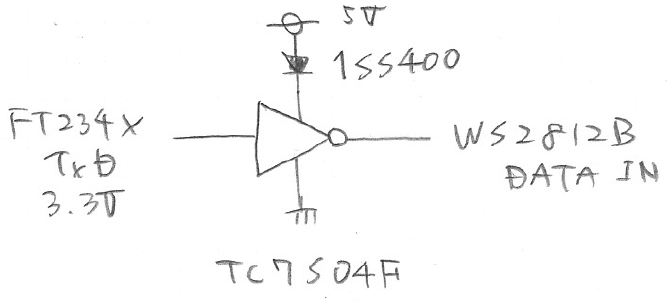 5V
1SS400
FT234X
TxD
3.3V
WS2812B
DATA IN
TC7S04F